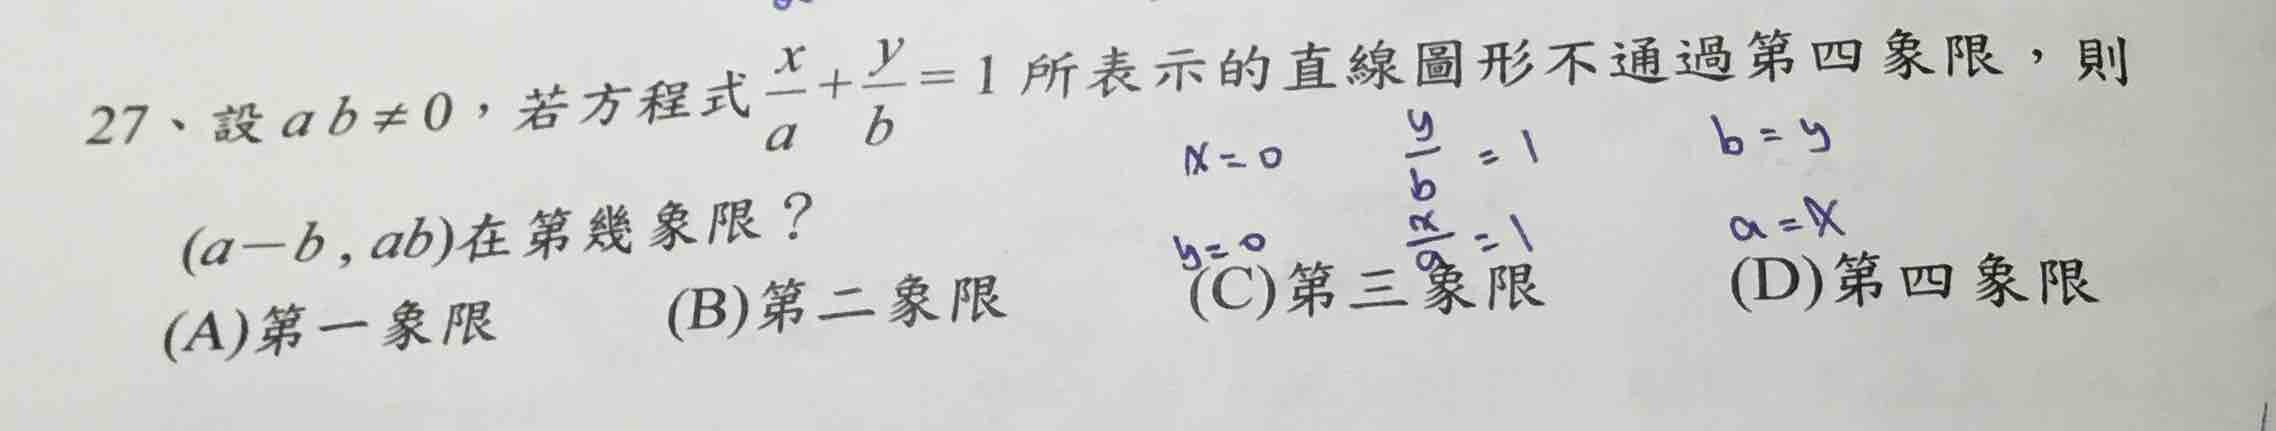 27、設 a b ≠ 0，若方程式 x/a + y/b = 1 所表示的直線圖形不通過第四象限，則
x = 0 y/b = 1 b = y
(a－b , ab)在第幾象限？
y = 0 x/a = 1 a = x
(A)第一象限 (B)第二象限 (C)第三象限 (D)第四象限